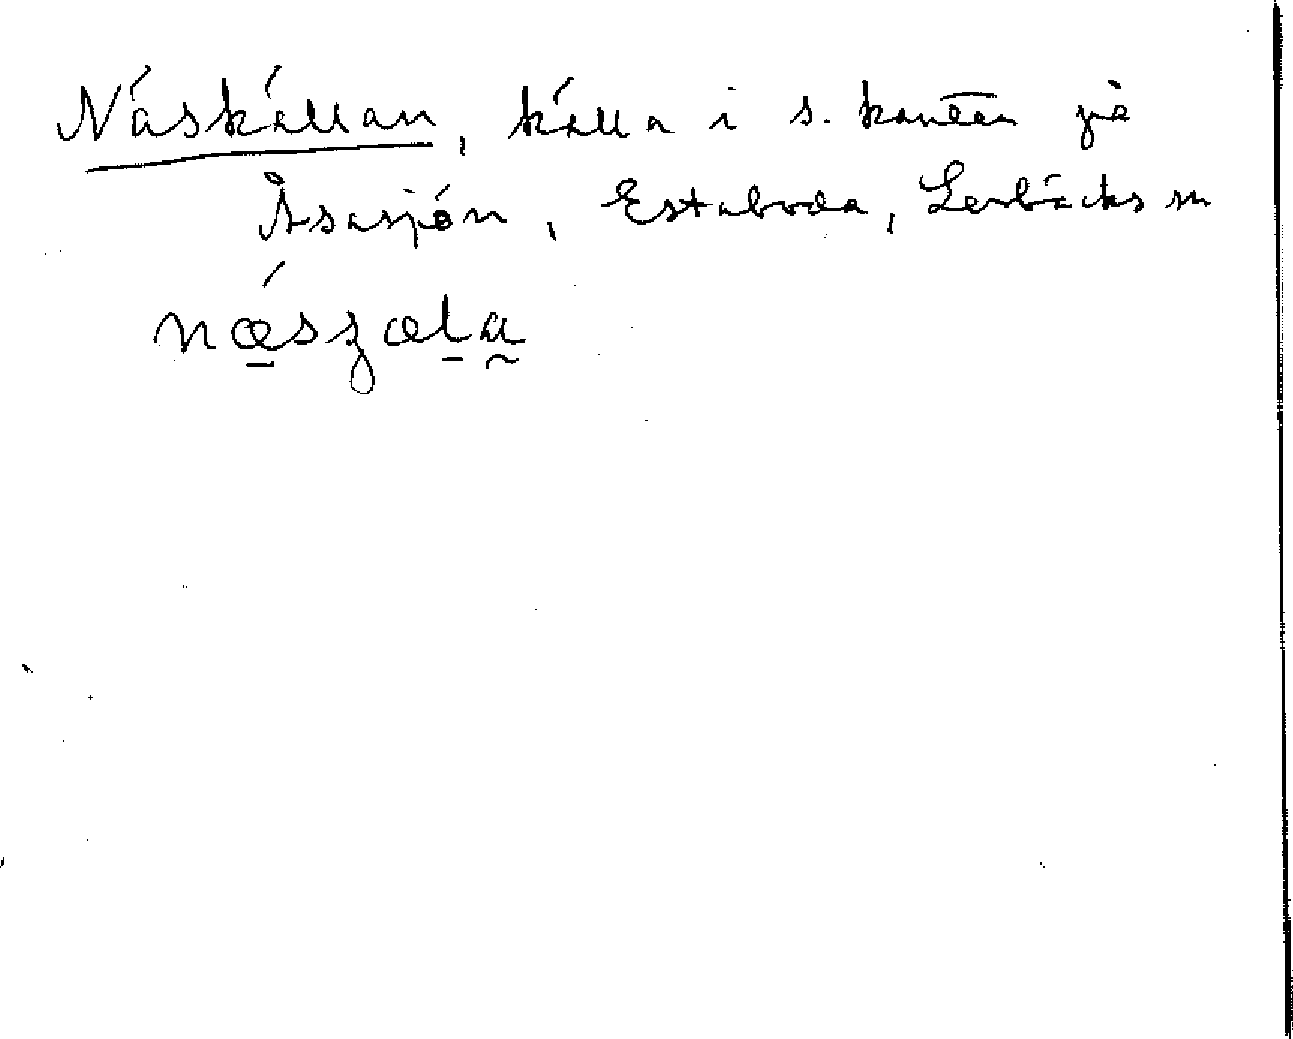 Näskällan, källa i s. kanten på
Åsasjön, Estaboda, Lerbäcks sn